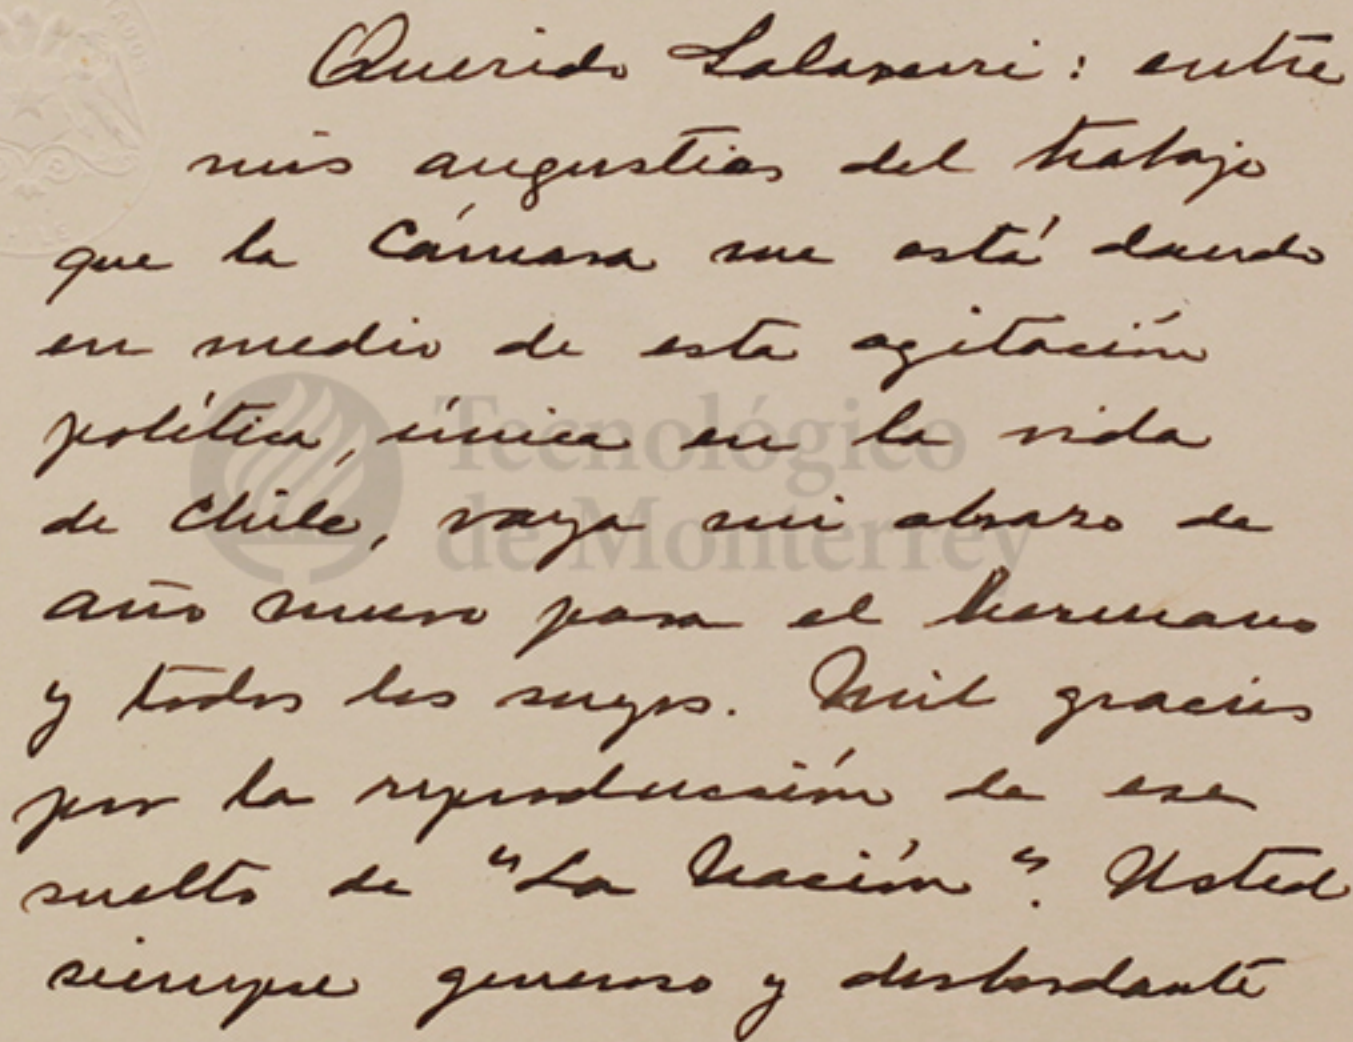 Querido Salaverri: entre
mis angustias del trabajo
que la Cámara me está dando
en medio de esta agitación
política, única en la vida
de Chile, vaya mi abrazo de
año nuevo para el hermano
y todos los suyos. Mil gracias
por la reproducción de ese
suelto de "La Nación". Usted
siempre generoso y desbordante
Tecnológico
de Monterrey